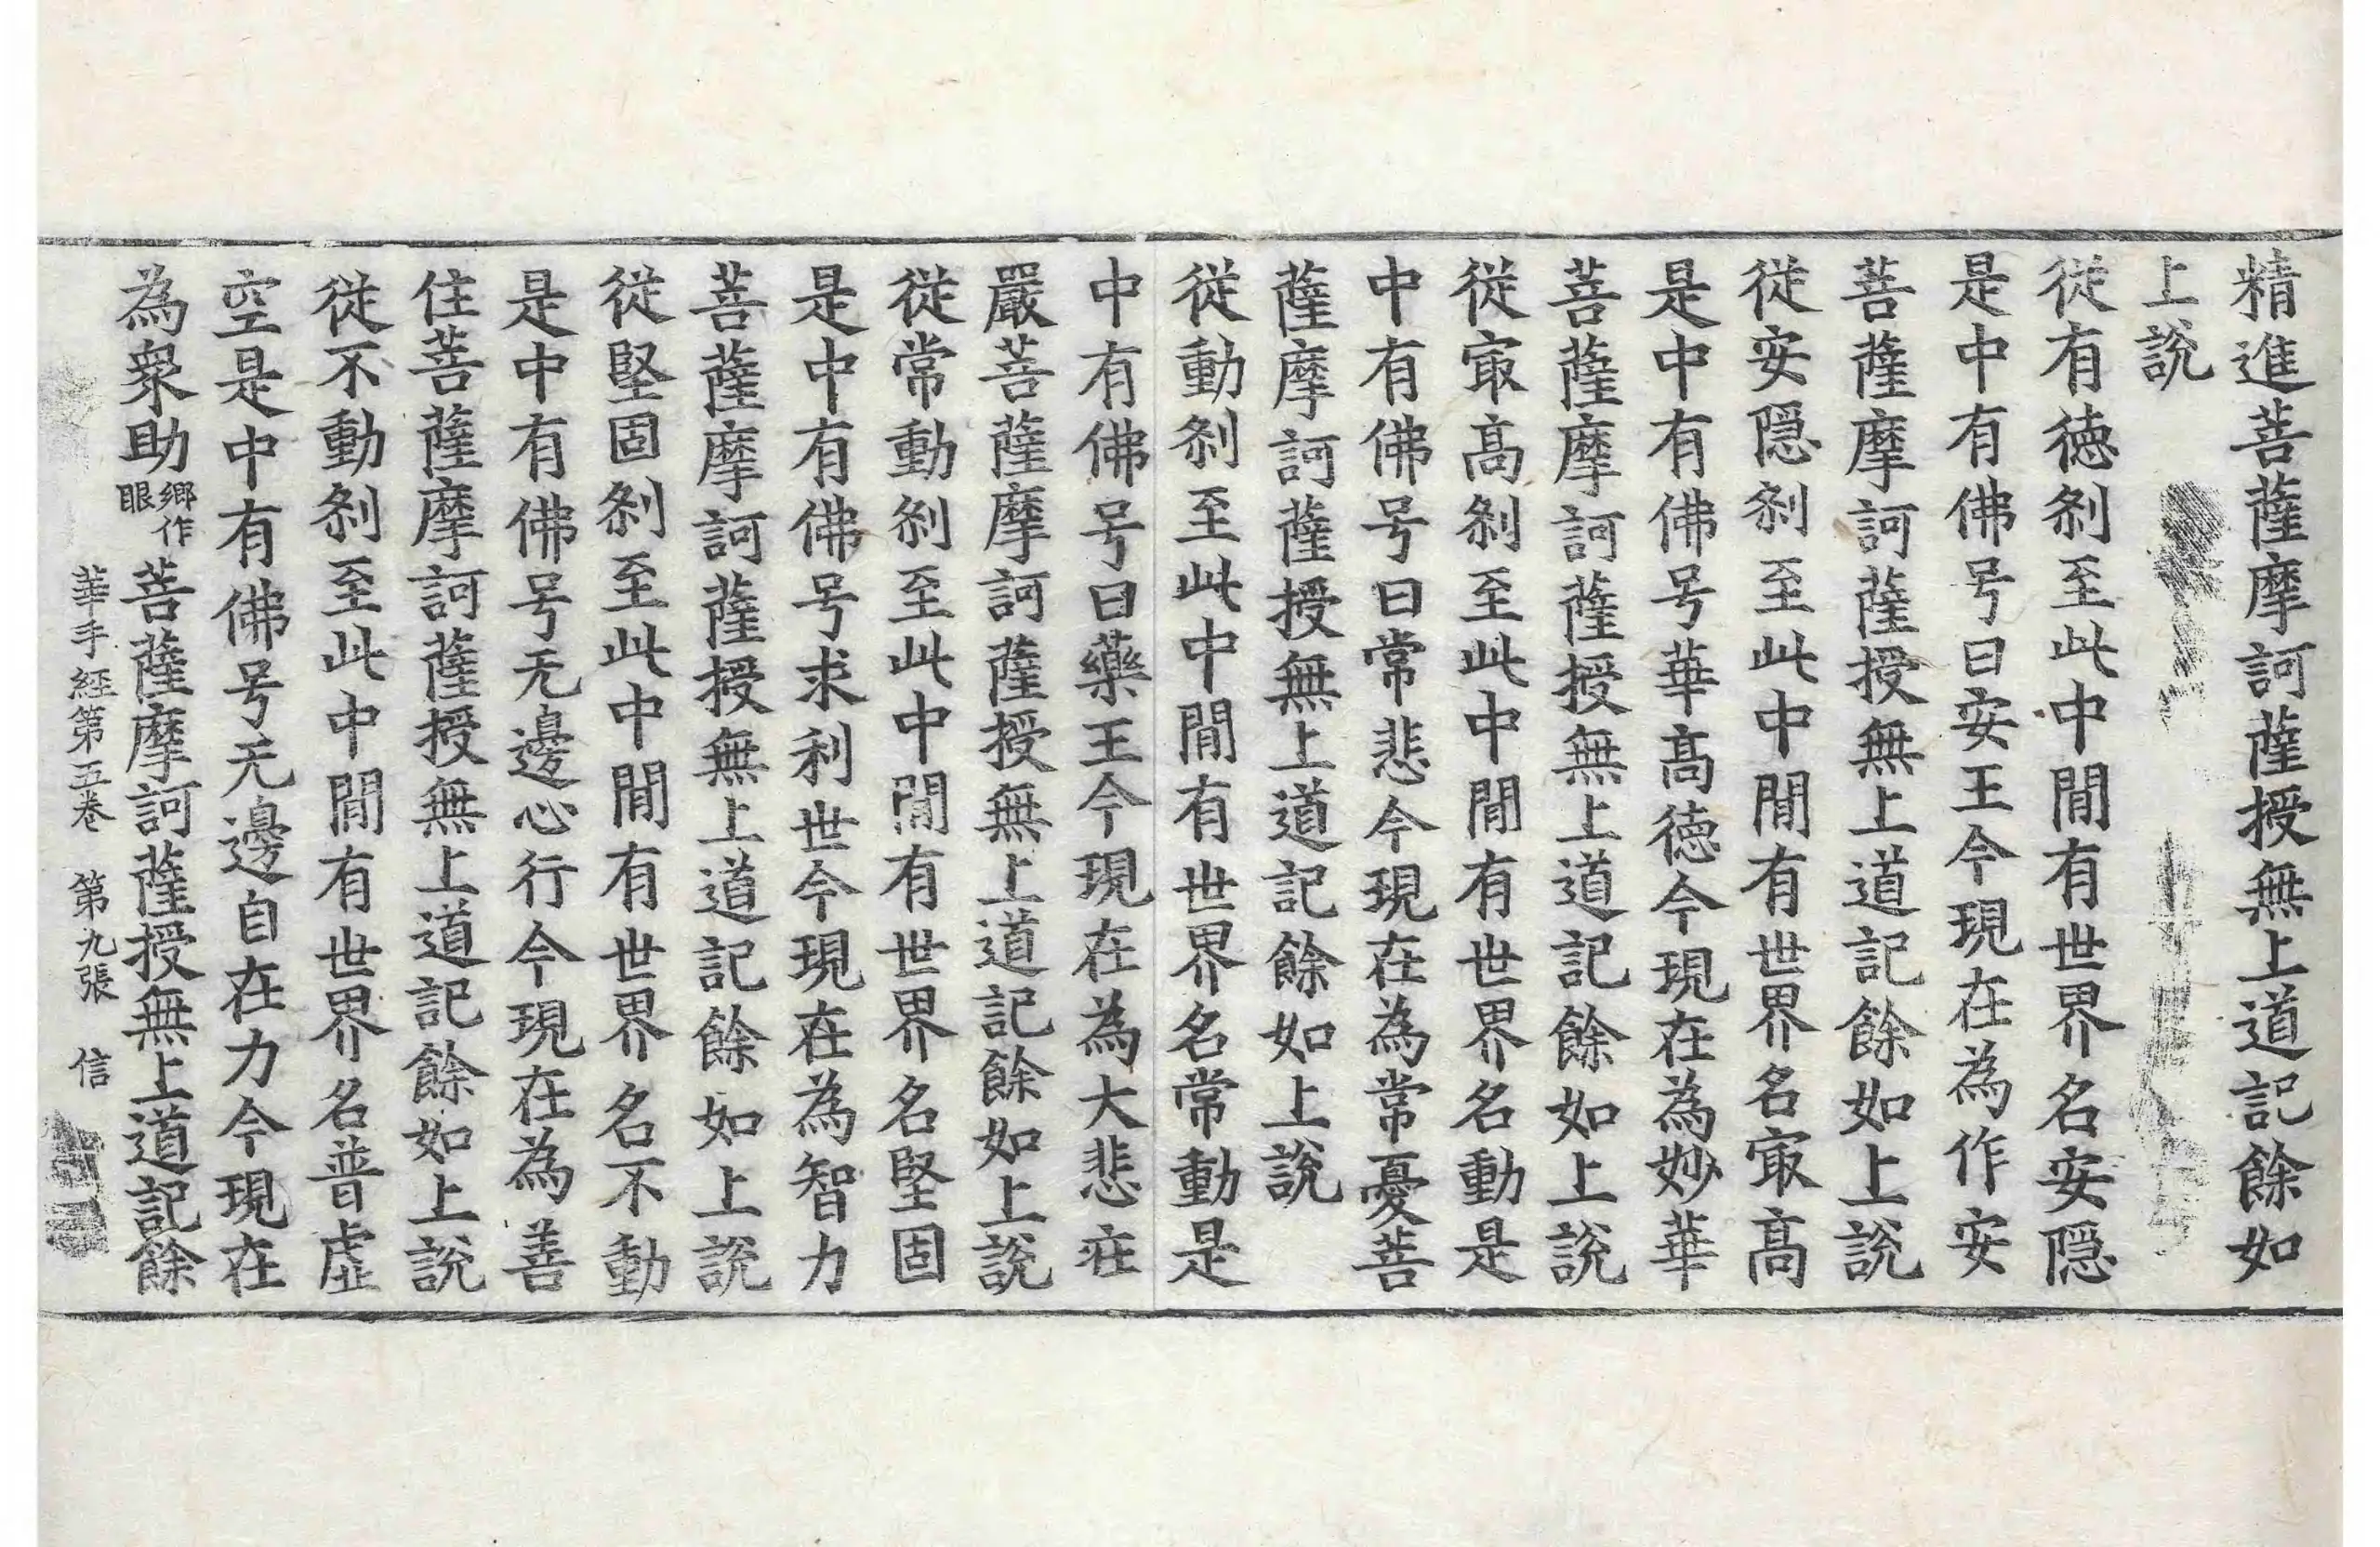 精進菩薩摩訶薩授無上道記餘如
上說
從有德剎至此中閒有世界名安隱
是中有佛号曰安王今現在為作安
菩薩摩訶薩授無上道記餘如上說
從安隱剎至此中閒有世界名㝡高
是中有佛号華高德今現在為妙華
菩薩摩訶薩授無上道記餘如上說
從㝡高剎至此中閒有世界名動是
中有佛号曰常悲今現在為常憂菩
薩摩訶薩授無上道記餘如上說
從動剎至此中閒有世界名常動是
中有佛号曰藥王今現在為大悲㽵
嚴菩薩摩訶薩授無上道記餘如上說
從常動剎至此中閒有世界名堅固
是中有佛号求利世今現在為智力
菩薩摩訶薩授無上道記餘如上說
從堅固剎至此中閒有世界名不動
是中有佛号无邊心行今現在為善
住菩薩摩訶薩授無上道記餘如上說
從不動剎至此中閒有世界名普虛
空是中有佛号无邊自在力今現在
為衆助鄉作眼菩薩摩訶薩授無上道記餘
華手經第五卷 第九張 信